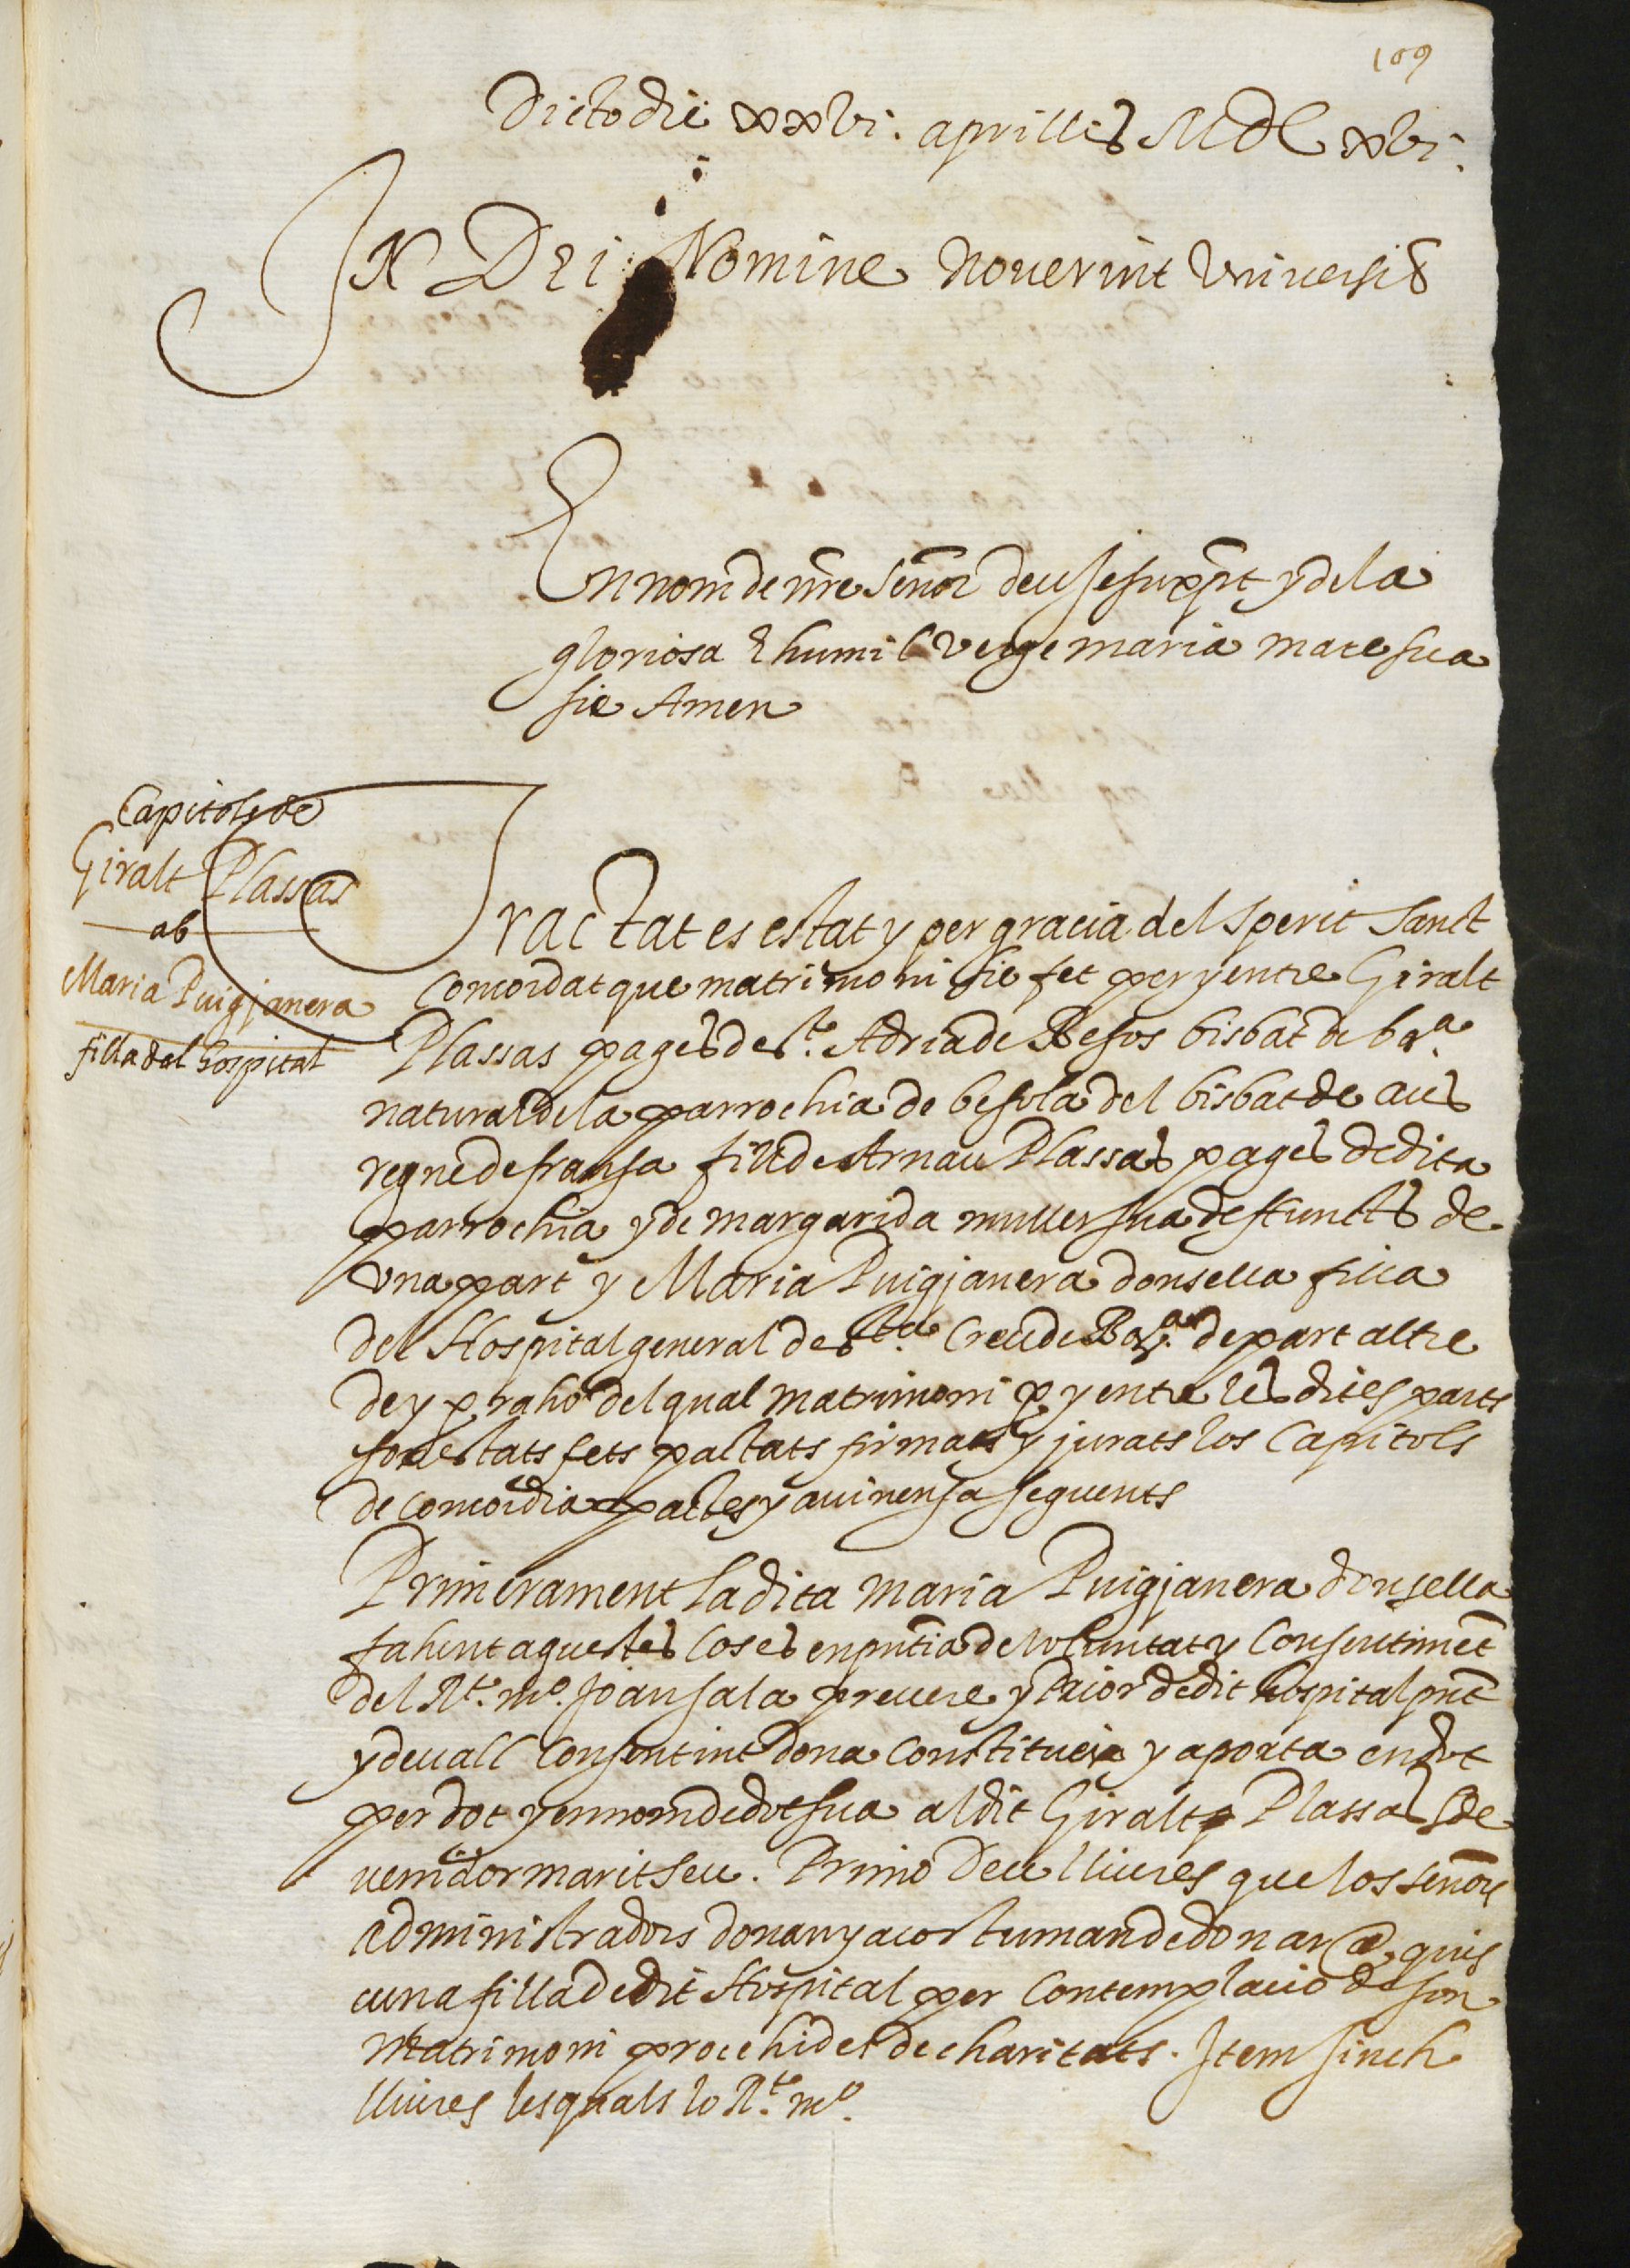 109
Dicto die xxvi. aprillis MDLxvi.
IN DEI Nomine Noverint Vniversis
En nom de nre Senor deu Jesuxpst y de la
gloriosa E humil Verge maria mare sua
sie Amen
Capitols de
Giralt Plassas
ab
Maria Puigjanera
filla del hospital
Tractat es estat y per gracia del Sperit Sanct
Concordat que matrimoni sie fet per y entre Giralt
Plassas pages de St. Adria de Besos bisbat de bar.na
natural de la parrochia de besola del bisbat de aus
regne de fransa fill de Arnau Plassas pages de dita
parrochia y de margarida muller sua defuncts de
vna part y Maria Puigjanera donsella filla
del Hospital general de Sta. Creu de Bar.na de part altre
de y p raho del qual matrimoni p y entre les dites parts
son estats fets pactats firmats y jurats los Capitols
de concordia pactes y auinensa seguents
Primerament la dita maria Puigjanera donsella
fahent aquestes Coses en pntia de voluntat y Consentimet
del Rt. mo. Joan sala preuere y Prior de dit hospital pnt
y deuall Consentint dona Constitueix y aporta en dot
per dot y en nom de dot sua al dit Giralt Plassas sde
uenidor marit Seu. Primo Deu lliures que los senors
administradors donan y acostuman de donar a quis
cuna filla de dit Hospital per Contemplacio de son
Matrimoni procehides de charitats. Item Sinch
lliures les quals lo Rt. mo.